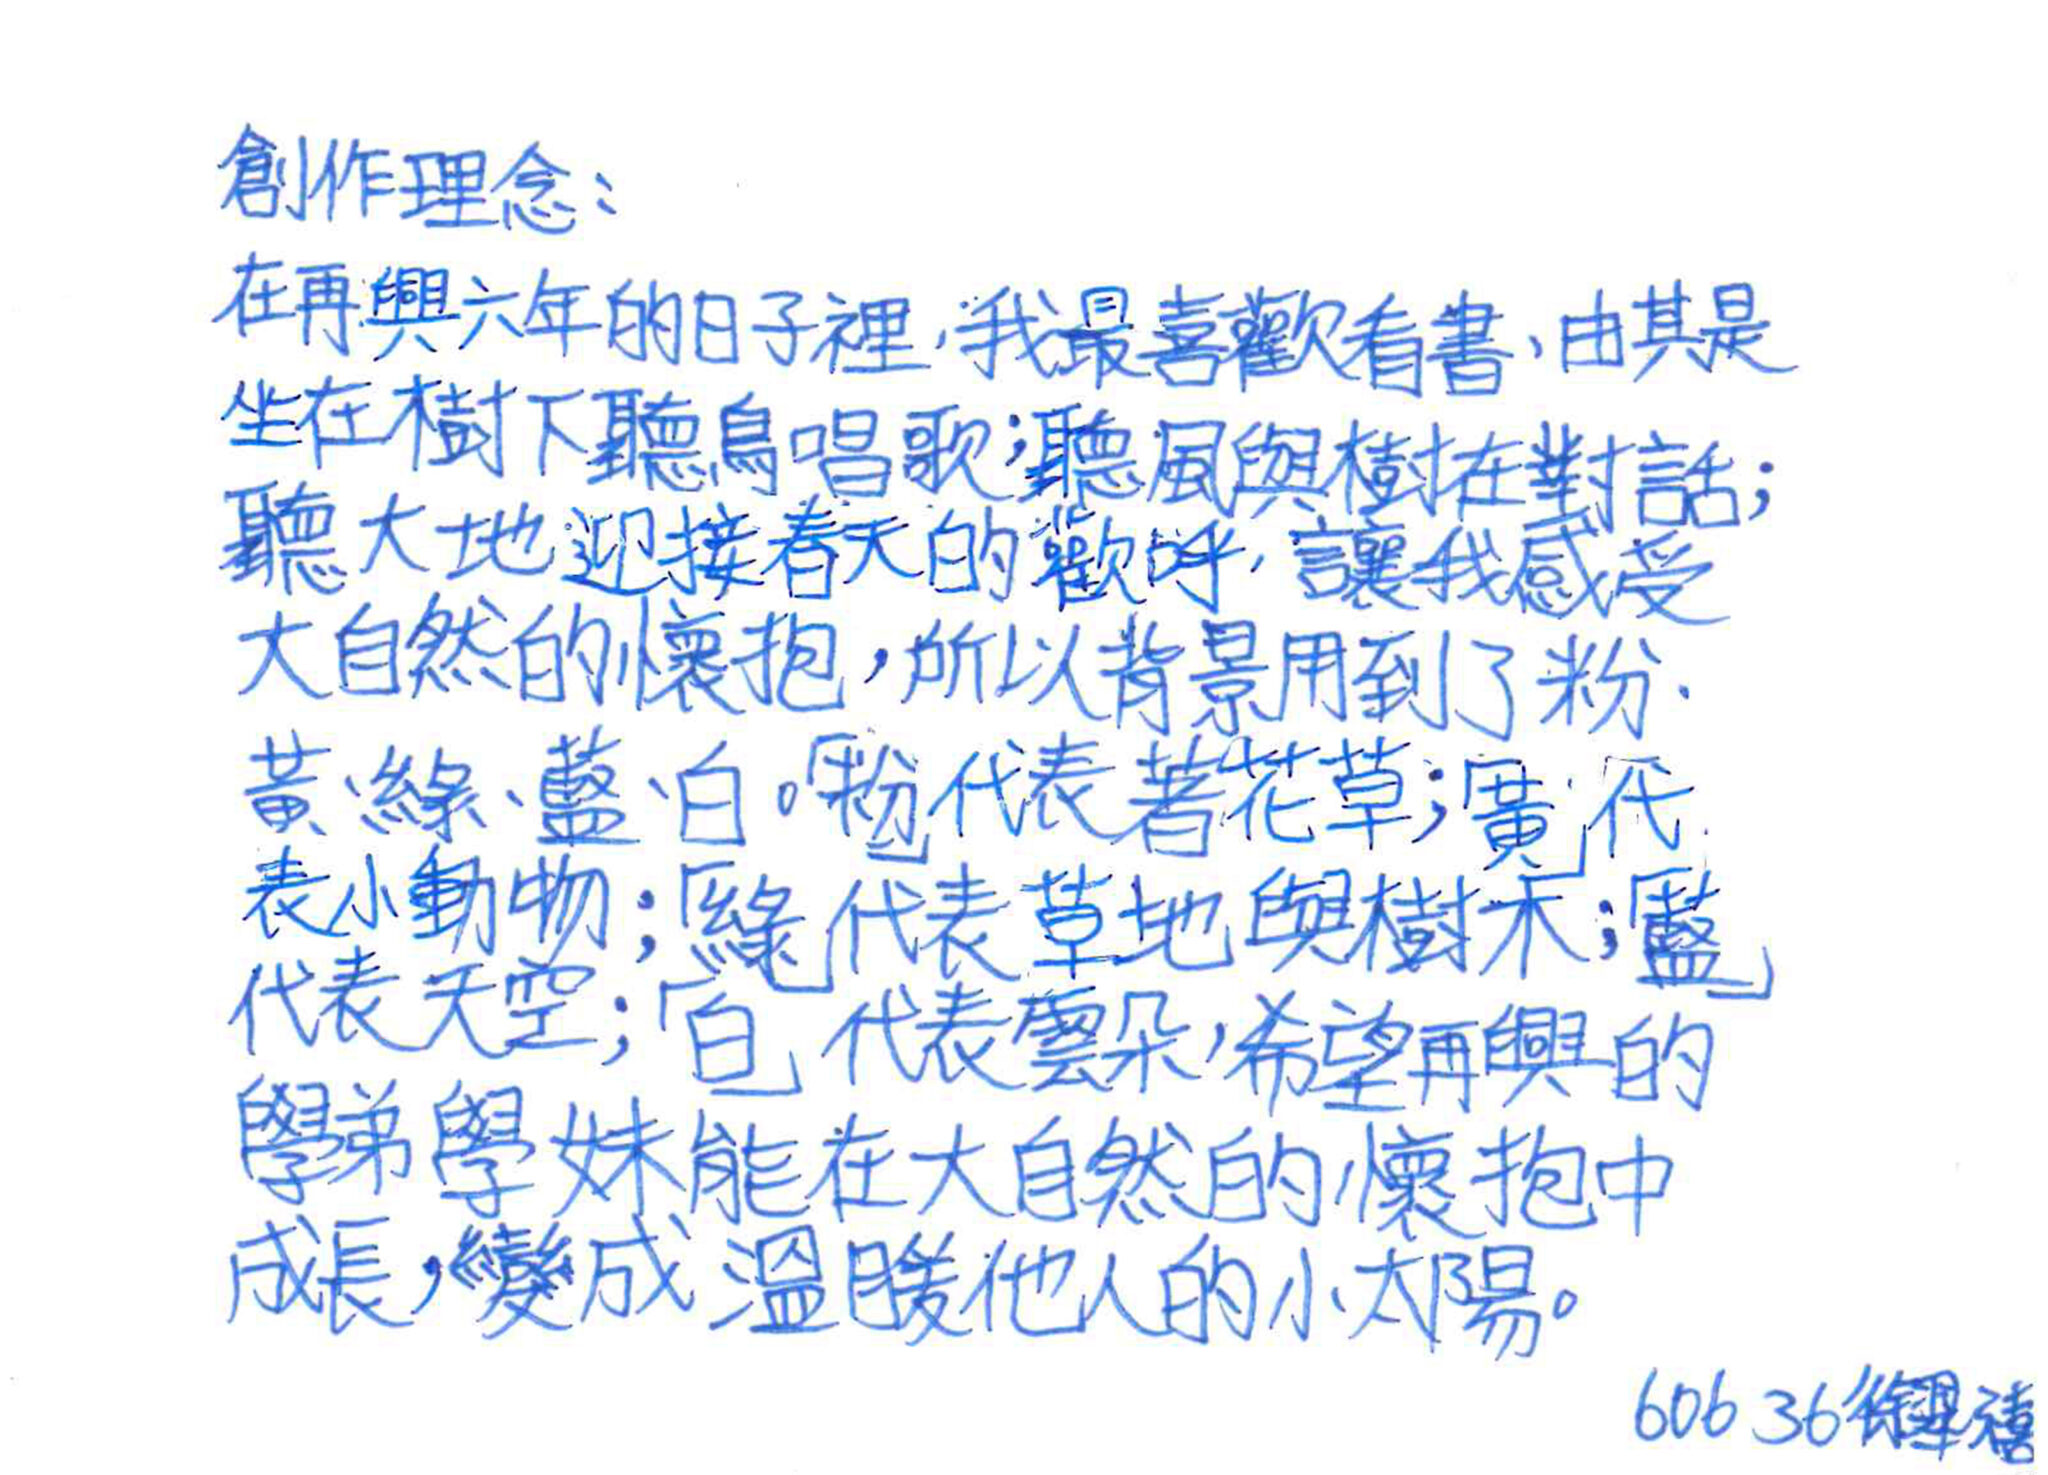 創作理念:
在再興六年的日子裡,我最喜歡看書,由其是
坐在樹下聽鳥唱歌;聽風與樹在對話;
聽大地迎接春天的歡呼,讓我感受
大自然的懷抱,所以背景用到了粉、
黃、綠、藍、白。「粉」代表著花草;「黃」代
表小動物;「綠」代表草地與樹木;「藍」
代表天空;「白」代表雲朵,希望再興的
學弟學妹能在大自然的懷抱中
成長,變成溫暖他人的小太陽。
606 36 徐 禧